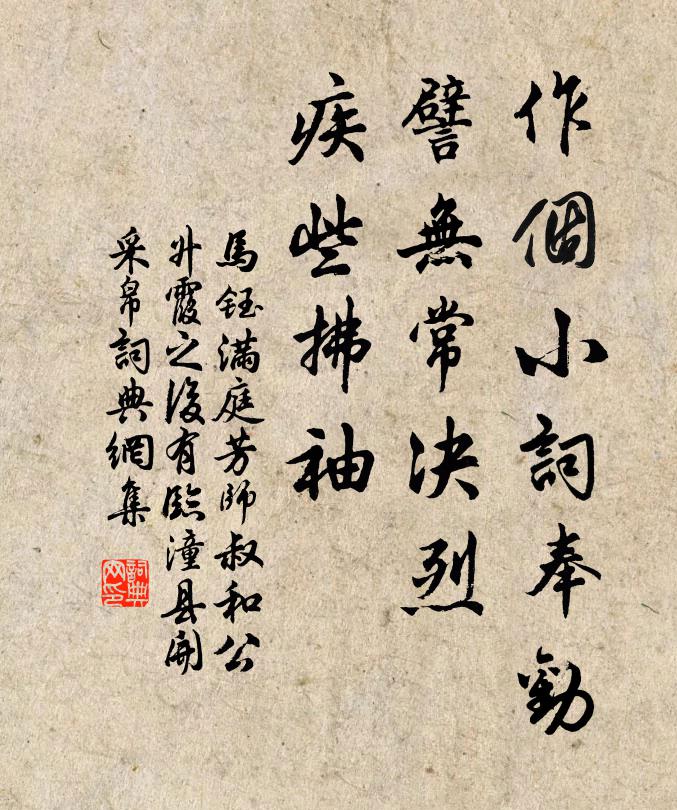 作個小詞奉勸
譬無常決烈
疾些拂袖
馬鈺滿庭芳師叔和公
升霞之後有臨潼县開
采帛詞典網集
詞典
网印